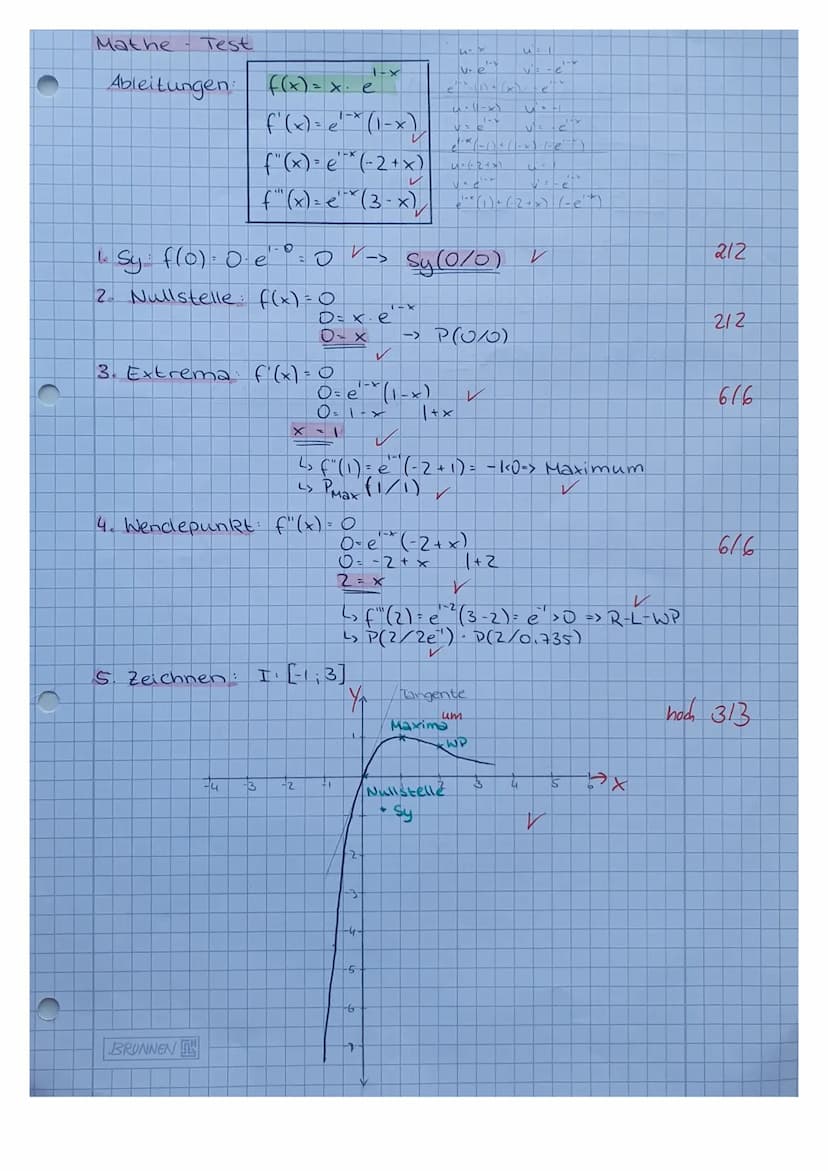 Mathe - Test
Ableitungen:
f(x) = x · e^(1-x)
f'(x) = e^(1-x) (1-x) ✓
f''(x) = e^(1-x) (-2+x) ✓
f'''(x) = e^(1-x) (3-x) ✓
u = x u' = 1
v = e^(1-x) v' = -e^(1-x)
u = (1-x) u' = -1
v = e^(1-x) v' = -e^(1-x)
e^(1-x) (-1) + (1-x) (-e^(1-x))
u = (-2+x) u' = 1
v = e^(1-x) v' = -e^(1-x)
e^(1-x) (1) + (-2+x) · (-e^(1-x))
1. Sy: f(0) = 0 · e^(1-0) = 0 ✓ -> Sy(0/0) ✓ 2/2
2. Nullstelle: f(x) = 0
0 = x · e^(1-x)
0 = x -> P(0/0) ✓ 2/2
3. Extrema: f'(x) = 0
0 = e^(1-x) (1-x) ✓ 6/6
0 = 1-x |+x
x = 1 ✓
↳ f''(1) = e^(1-1) (-2+1) = -1<0 => Maximum ✓
↳ P Max (1/1) ✓
4. Wendepunkt: f''(x) = 0
0 = e^(1-x) (-2+x) 6/6
0 = -2+x |+2
2 = x ✓
↳ f'''(2) = e^(1-2) (3-2) = e^(-1) > 0 => R-L-WP ✓
↳ P(2/2e^(-1)) · P(2/0.735) ✓
5. Zeichnen: I: [-1; 3]
Y
Tangente
um
Maxima
hoch 3/3
1
WP
-4 -3 -2 -1 2 3 4 5 6 X
Nullstelle
+ Sy
✓
-2
-3
-4
-5
-6
-7
BRUNNEN